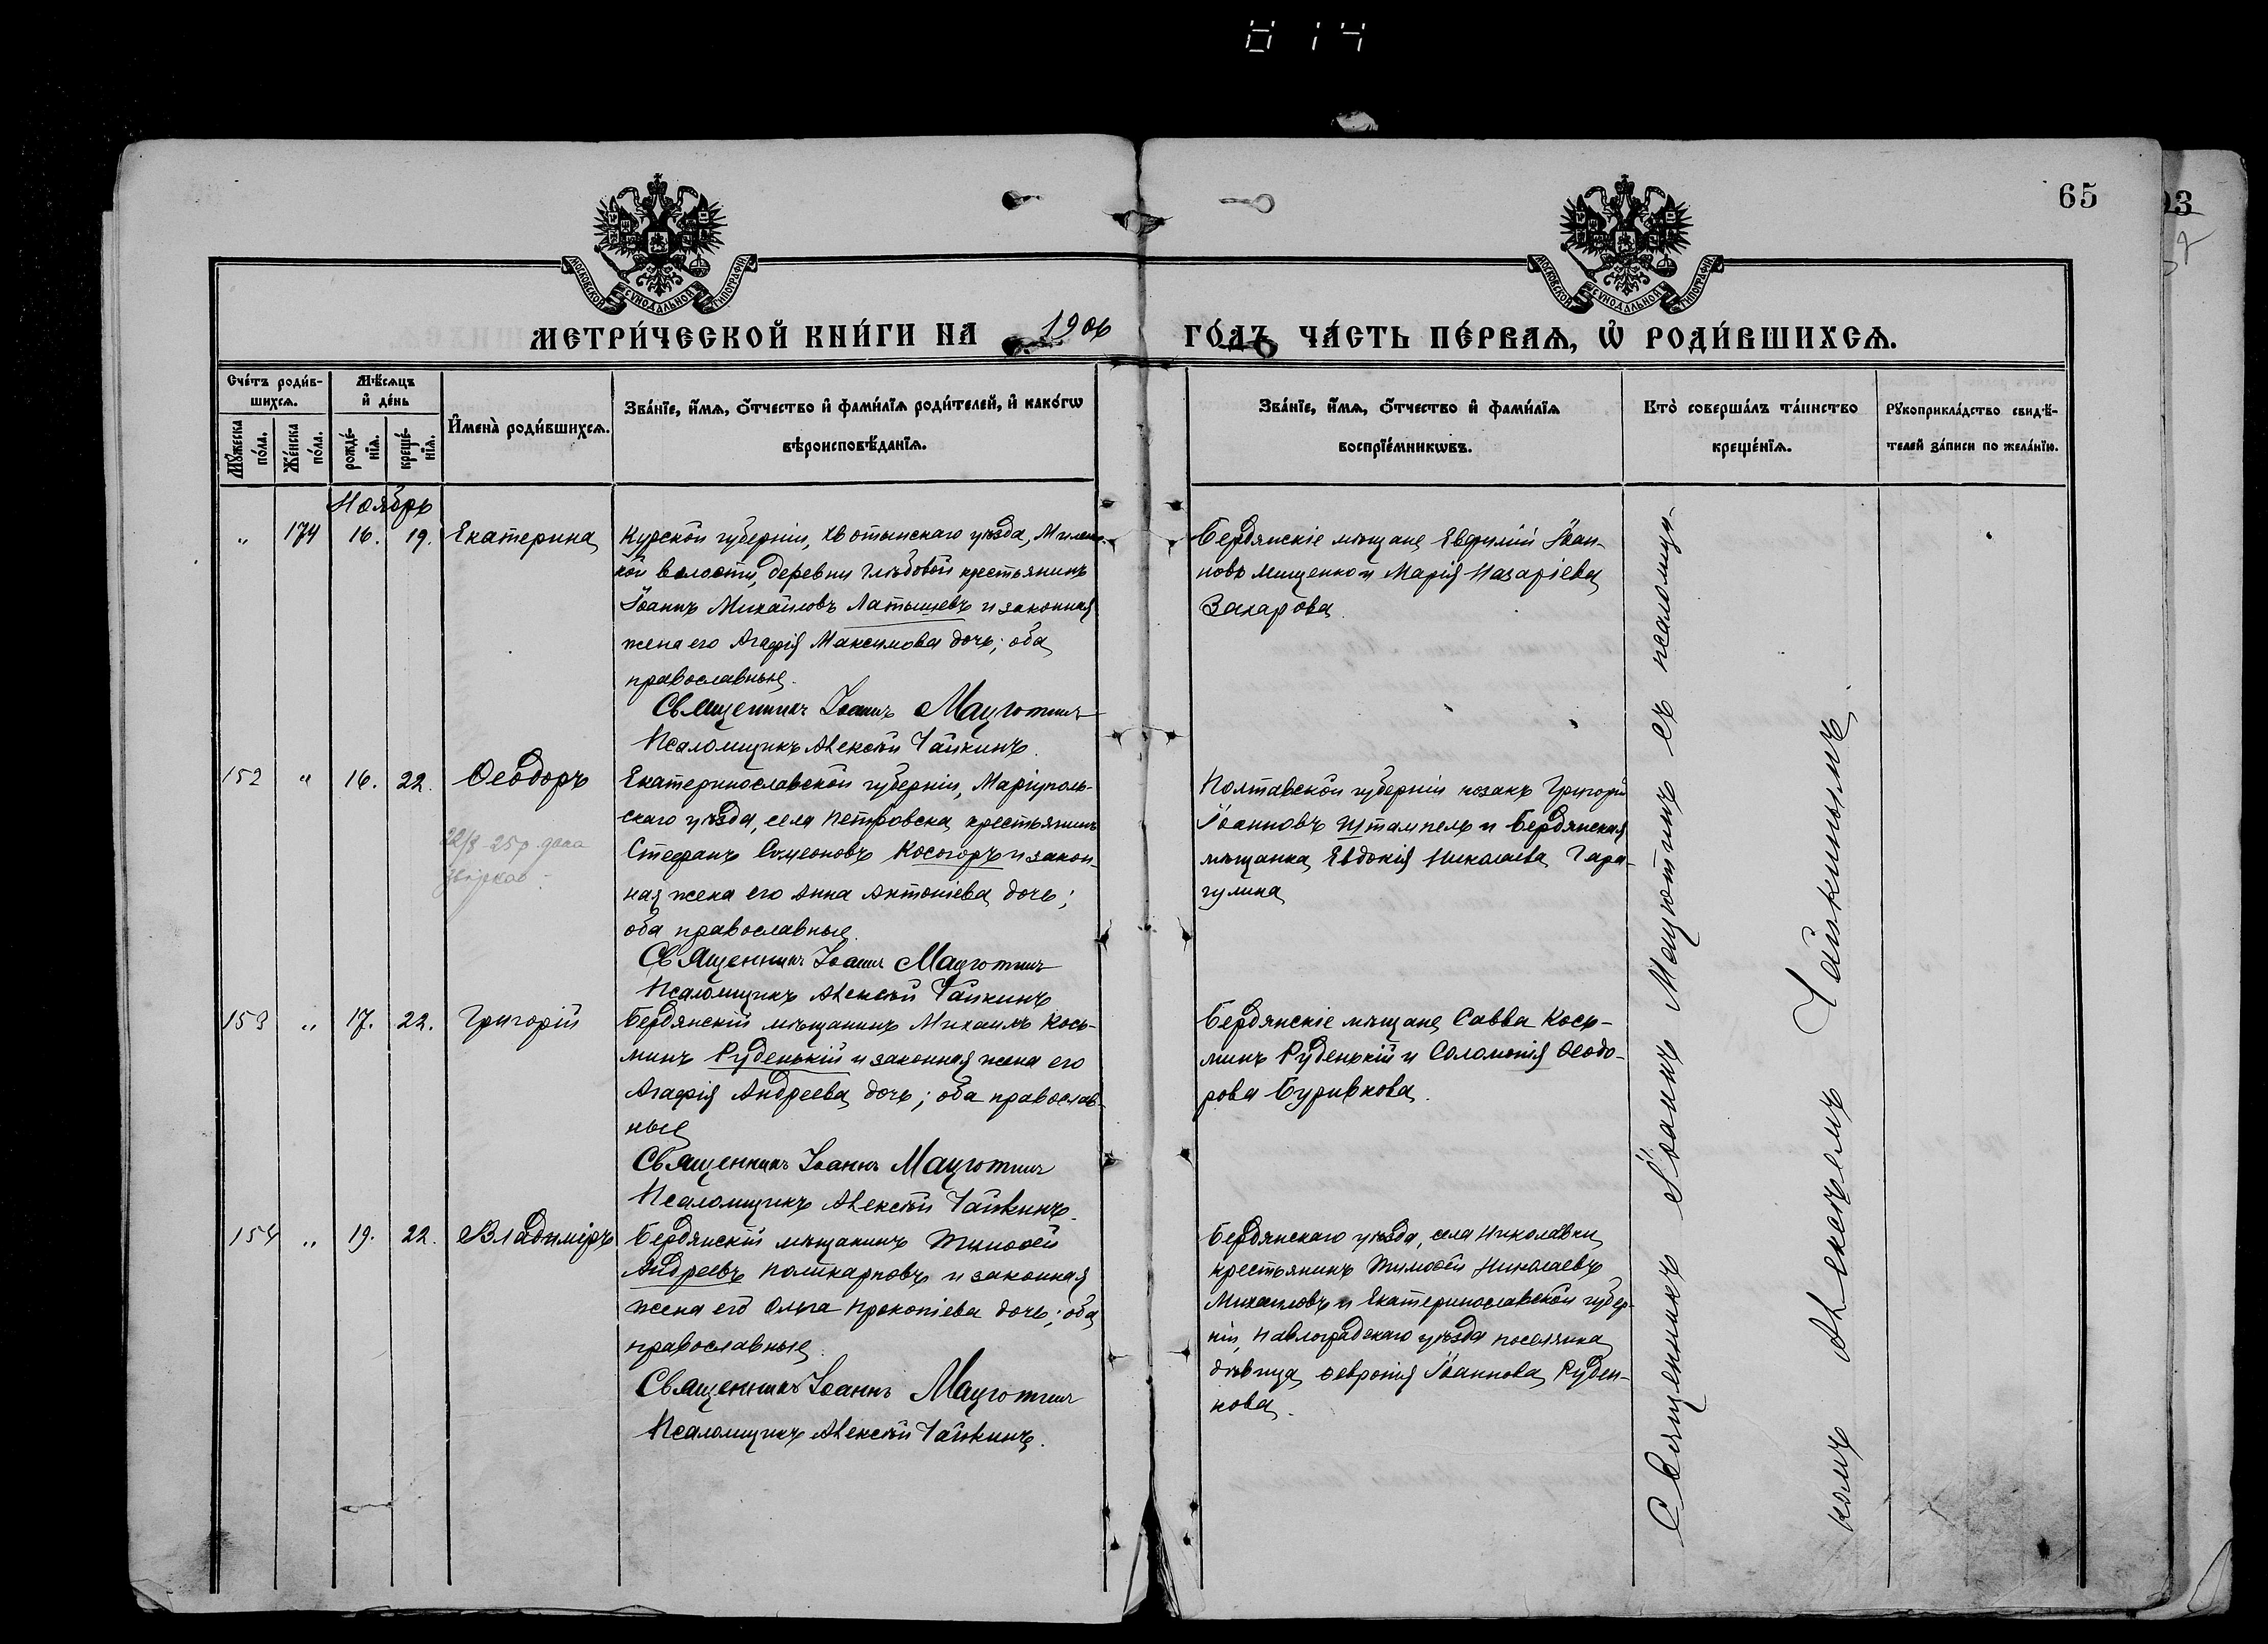 814
65
МОСКОВСКОЙ СѴНОДАЛЬНОЙ ТИПОГРАФІИ
МОСКОВСКОЙ СѴНОДАЛЬНОЙ ТИПОГРАФІИ
МЕТРИ́ЧЕСКОЙ КНИ́ГИ НА 1906 ГО́ДЪ ЧА́СТЬ ПЕ́РВАѦ, Ѡ҆ РОДИ́ВШИХСѦ.
Сче́тъ роди́в-
шихсѧ.
Мѣ́сѧцъ
и҆ де́нь
Мꙋ́жеска
по́ла.
Же́нска
по́ла.
рожде́-
нїѧ.
креще́-
нїѧ.
И҆мена̀ роди́вшихсѧ.
Зва́нїе, и҆́мѧ, ѻ҆́тчество и҆ фами́лїѧ роди́телей, и҆ како́гѡ
вѣроисповѣ́данїѧ.
Зва́нїе, и҆́мѧ, ѻ҆́тчество и҆ фами́лїѧ
воспрїе́мникѡвъ.
Кто̀ соверша́лъ та́инство
креще́нїѧ.
Рꙋкоприкла́дство свидѣ́-
телей за́писи по жела́нїю.
Ноябрь
„ 174 16. 19. Екатерина
Курской губерніи, уѣзда,
кой волости, деревни Глѣбовой крестьянинъ
Іоаннъ Михаиловъ Латышевъ и законная
жена его Агафія Максимова дочь; оба
православные.
Священникъ Іоаннъ Мацютинъ
Псаломщикъ Алексѣй Чайкинъ.
Бердянскіе мѣщане Евфимій Іоан-
новъ Мищенко и Марія Назаріева
Захарова
152 „ 16. 22. Ѳеодоръ
22/8-25р. дана
Екатеринославской губерніи, Маріуполь-
скаго уѣзда, села Петровска крестьянинъ
Стефанъ Симеоновъ Косогоръ и закон-
ная жена его Анна Антоніева дочь;
оба православные.
Священникъ Іоаннъ Мацютинъ
Псаломщикъ Алексѣй Чайкинъ
Полтавской губерніи козакъ Григорій
Іоанновъ Штампель и Бердянская
мѣщанка Евдокія Николаева Гара-
гулина
153 „ 17. 22. Григорій
Бердянскій мѣщанинъ Михаилъ Кось-
минъ Руденькій и законная жена его
Агафія Андреева дочь; оба православ-
ные
Священникъ Іоаннъ Мацютинъ
Псаломщикъ Алексѣй Чайкинъ.
Бердянскіе мѣщане Савва Кось-
минъ Руденькій и Соломонія Ѳеодо-
рова Буривкова.
154 „ 19. 22. Владиміръ
Бердянскій мѣщанинъ Тимоѳей
Андреевъ Поликарповъ и законная
жена его Ольга Прокопіева дочь; оба
православные.
Священникъ Іоаннъ Мацютинъ
Псаломщикъ Алексѣй Чайкинъ.
Бердянскаго уѣзда, села Николаевки
крестьянинъ Тимоѳей Николаевъ
Михаиловъ и Екатеринославской губер-
ніи, Павлоградскаго уѣзда поселянка
дѣвица Ѳевронія Іоаннова Руден-
кова.
Священникъ Іоаннъ Мацютинъ съ псаломщи-
комъ Алексѣемъ Чайкинымъ.